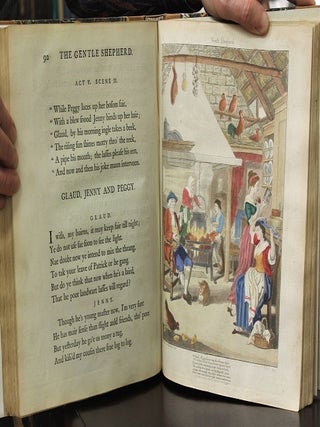 92 THE GENTLE SHEPHERD.
ACT V. SCENE II.
"While Peggy laces up her bosom fair,
"With a blew snood Jenny binds up her hair;
"Glaud, by his morning ingle takes a beek,
"The rising sun shines motty thro' the reek,
"A pipe his mouth; the lasses please his een,
"And now and then his joke maun interveen.
GLAUD, JENNY AND PEGGY.
GLAUD.
I wish, my bairns, it may keep fair till night;
Ye do not use sae soon to see the light.
Nae doubt now ye intend to mix the thrang,
To take your leave of Patrick or he gang.
But do ye think that now when he's a laird,
That he poor landwart lasses will regard?
JENNY.
Though he's young master now, I'm very sure
He has mair sense than slight auld friends, tho' poor.
But yesterday he gi'e us mony a tug,
And kiss'd my cousin there frae lug to lug.